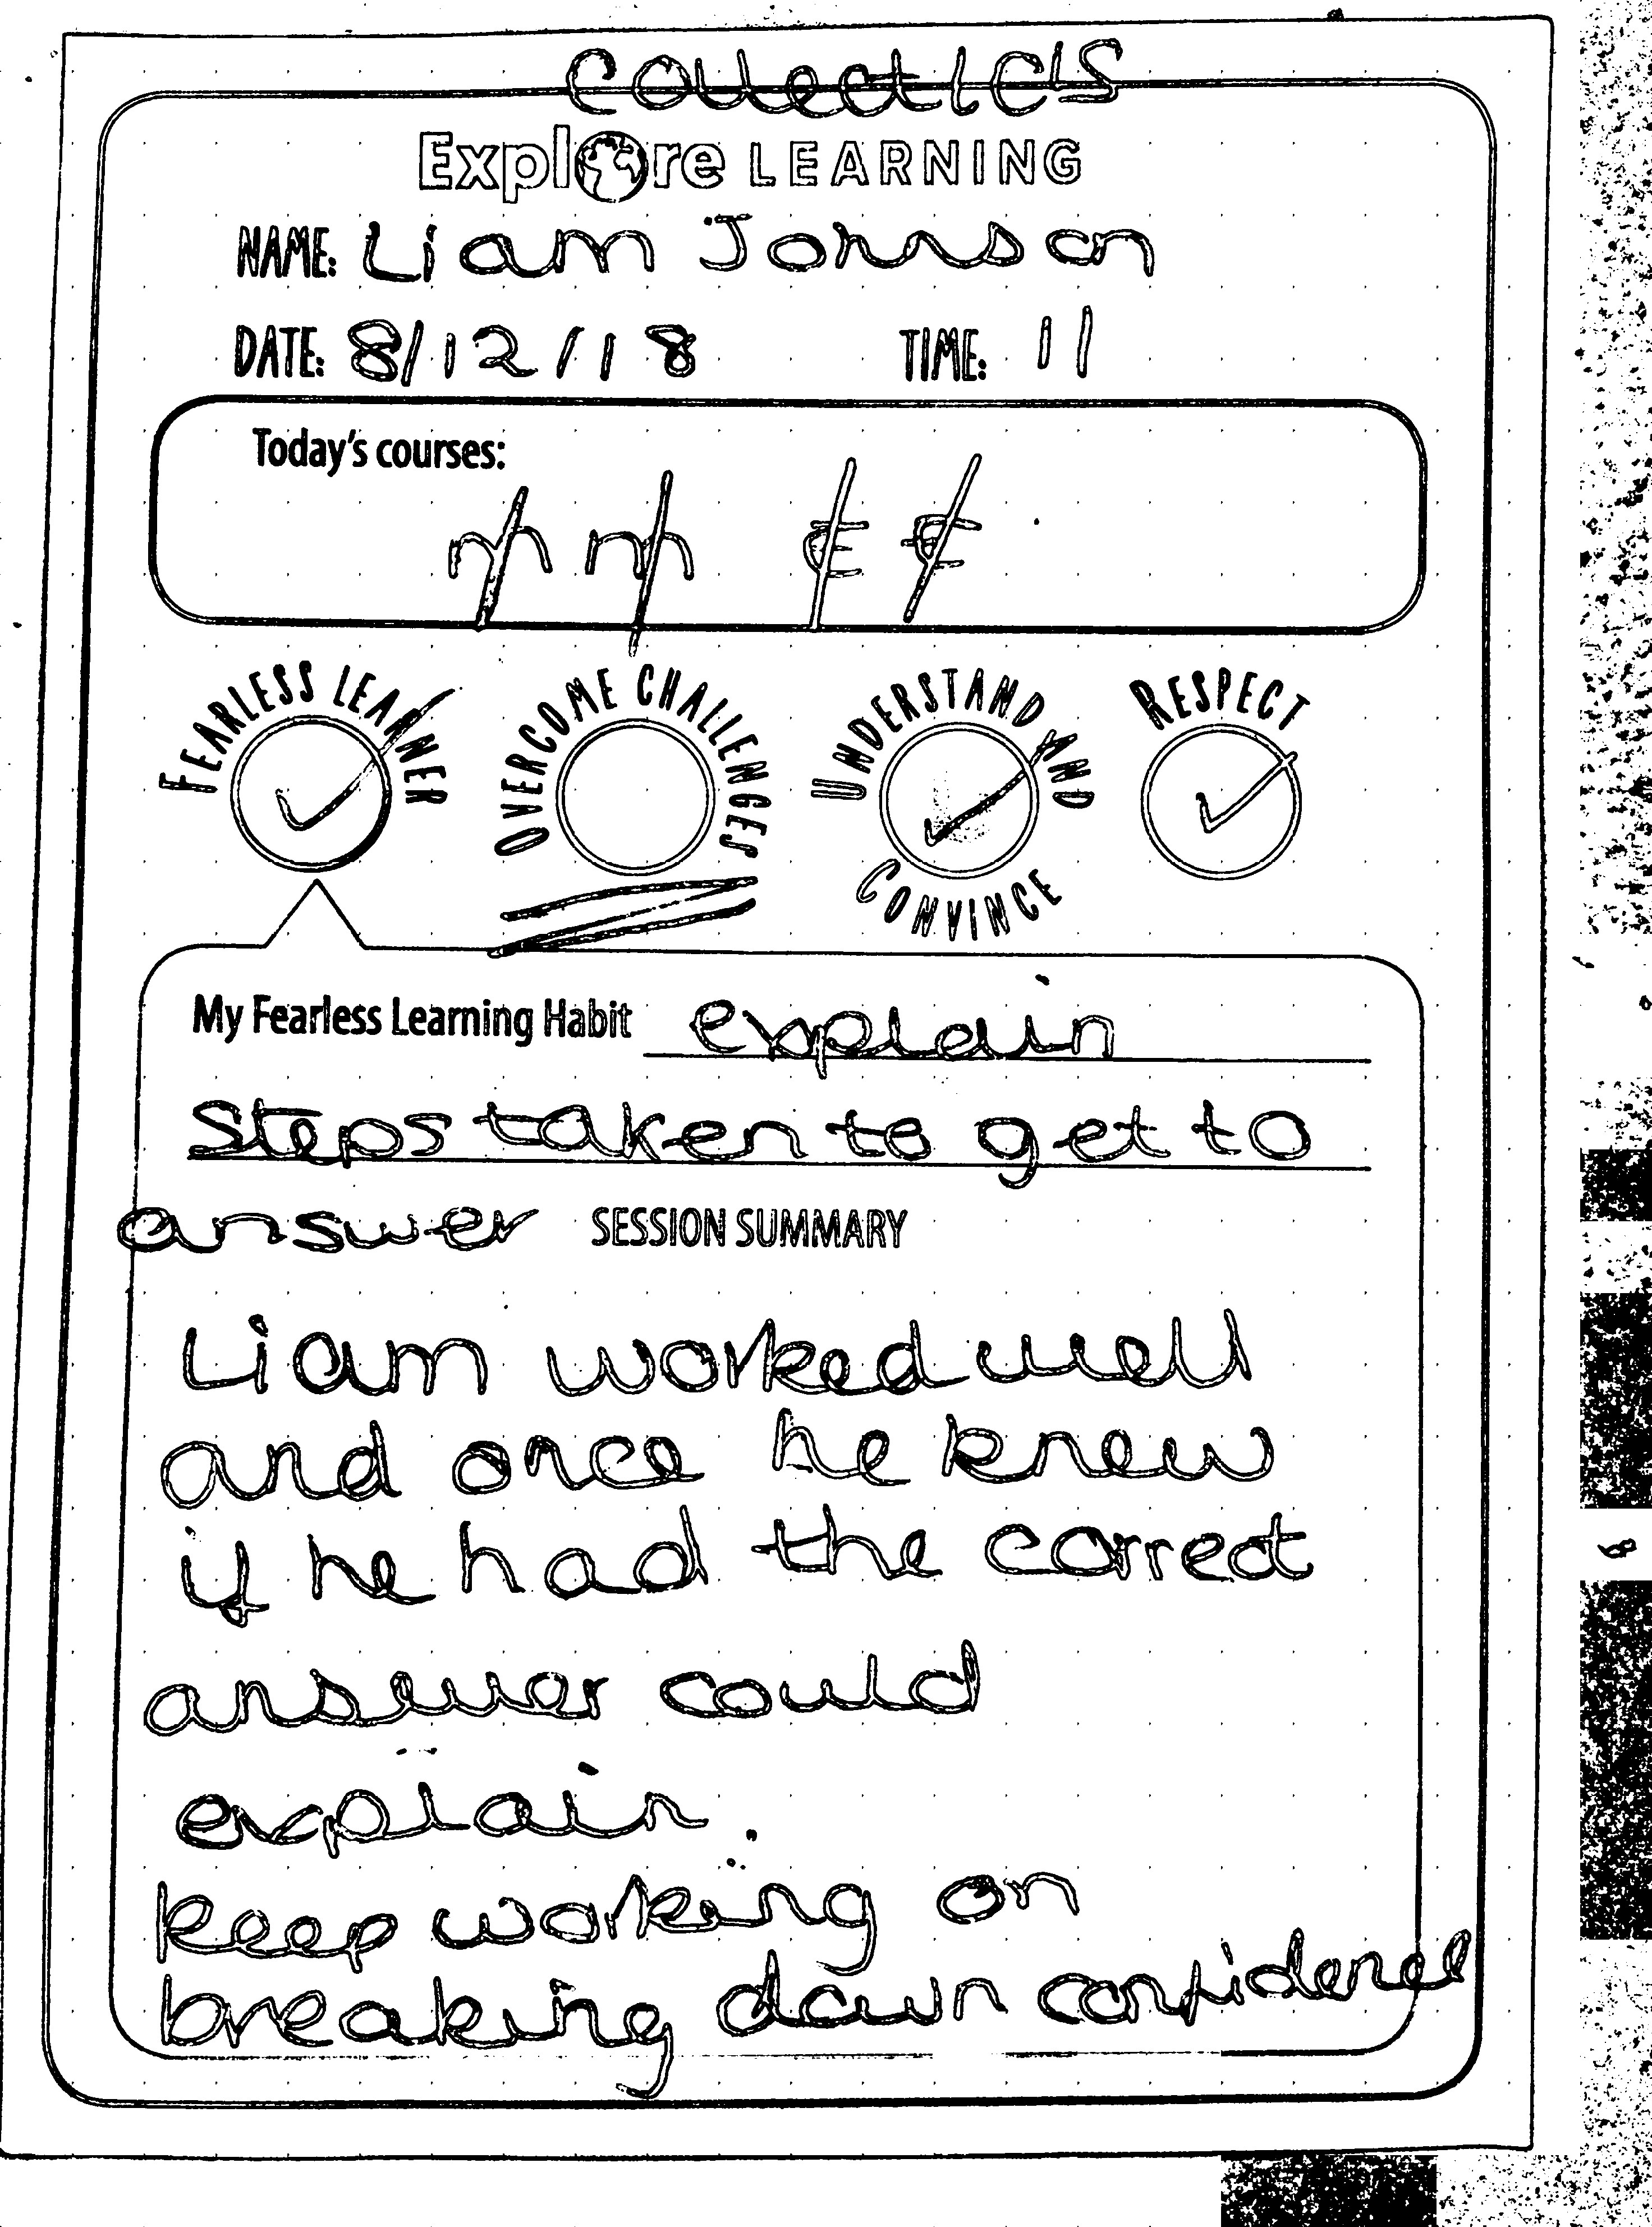 Collect ICIS
Explore LEARNING
NAME: Liam Johnson
DATE: 8/12/18 TIME: 11
Today's courses:
m m E E
FEARLESS LEARNER OVERCOME CHALLENGES UNDERSTAND AND CONVINCE RESPECT
My Fearless Learning Habit explain
Steps taken to get to
answer SESSION SUMMARY
Liam worked well
and once he knew
if he had the correct
answer could
explain.
keep working on
breaking down confidence